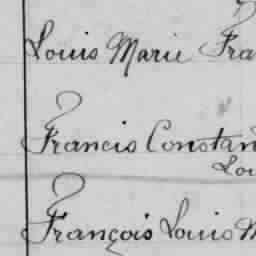 Louis Marie Fra
Francis Constan
Lou
François Louis M